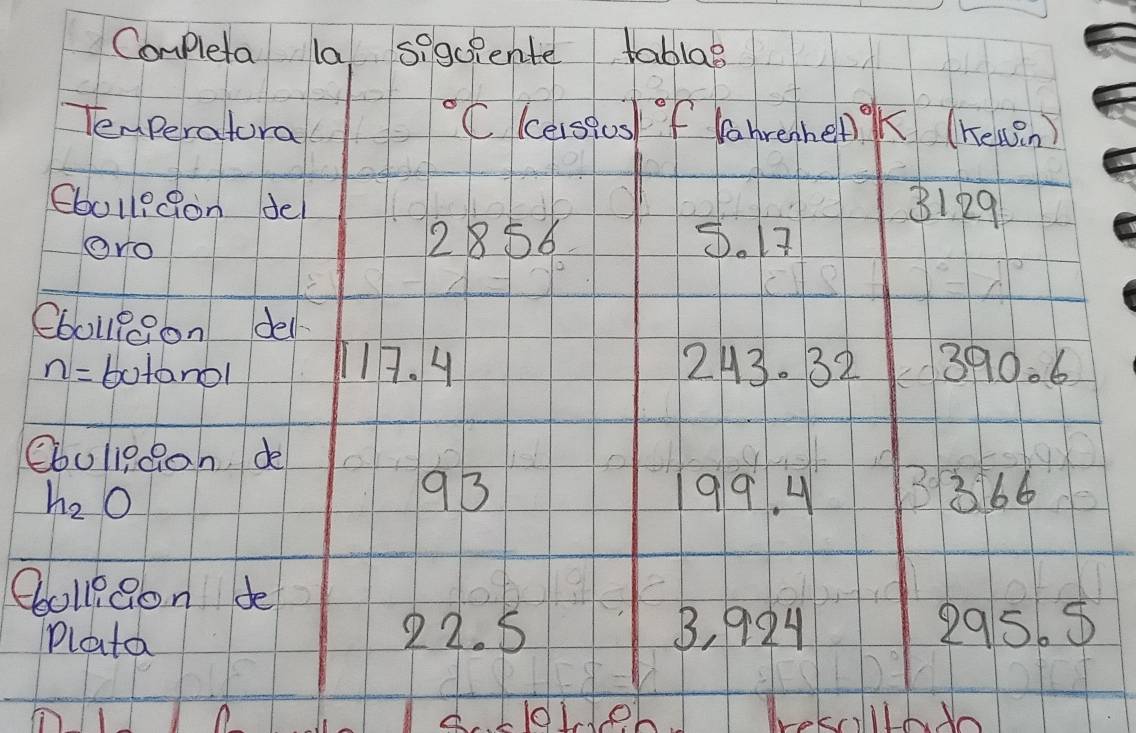 Completa la siguiente tabla:
Temperatura °C (celsius) °F (fahrenhet) °K (Kelvin)
Ebullición del oro 2856 5.17 3129
Ebullicion del n=butanol 117.4 243.32 390.6
Ebullician de h₂O 93 199.4 366
Ebullicion de Plata 22.5 3,924 295.5
resultado